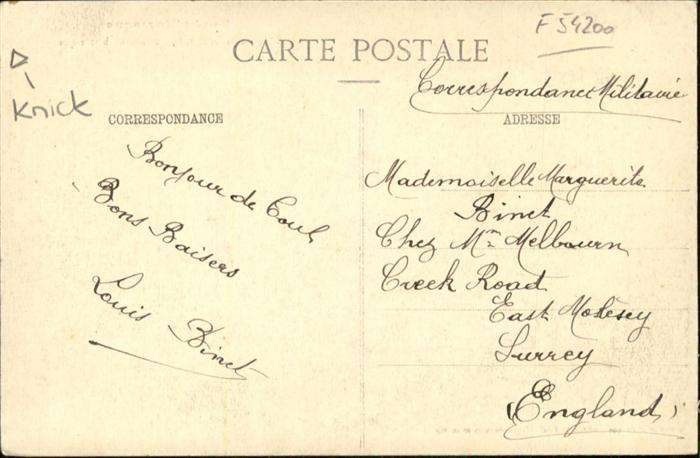 F 54200
CARTE POSTALE
Knick
Correspondance Militaire
CORRESPONDANCE
ADRESSE
Bonjour de Toul
Bons Baisers
Louis Binet
Mademoiselle Marguerite
Binet
Chez Mm Melbourn
Creek Road
East Molesey
Surrey
England